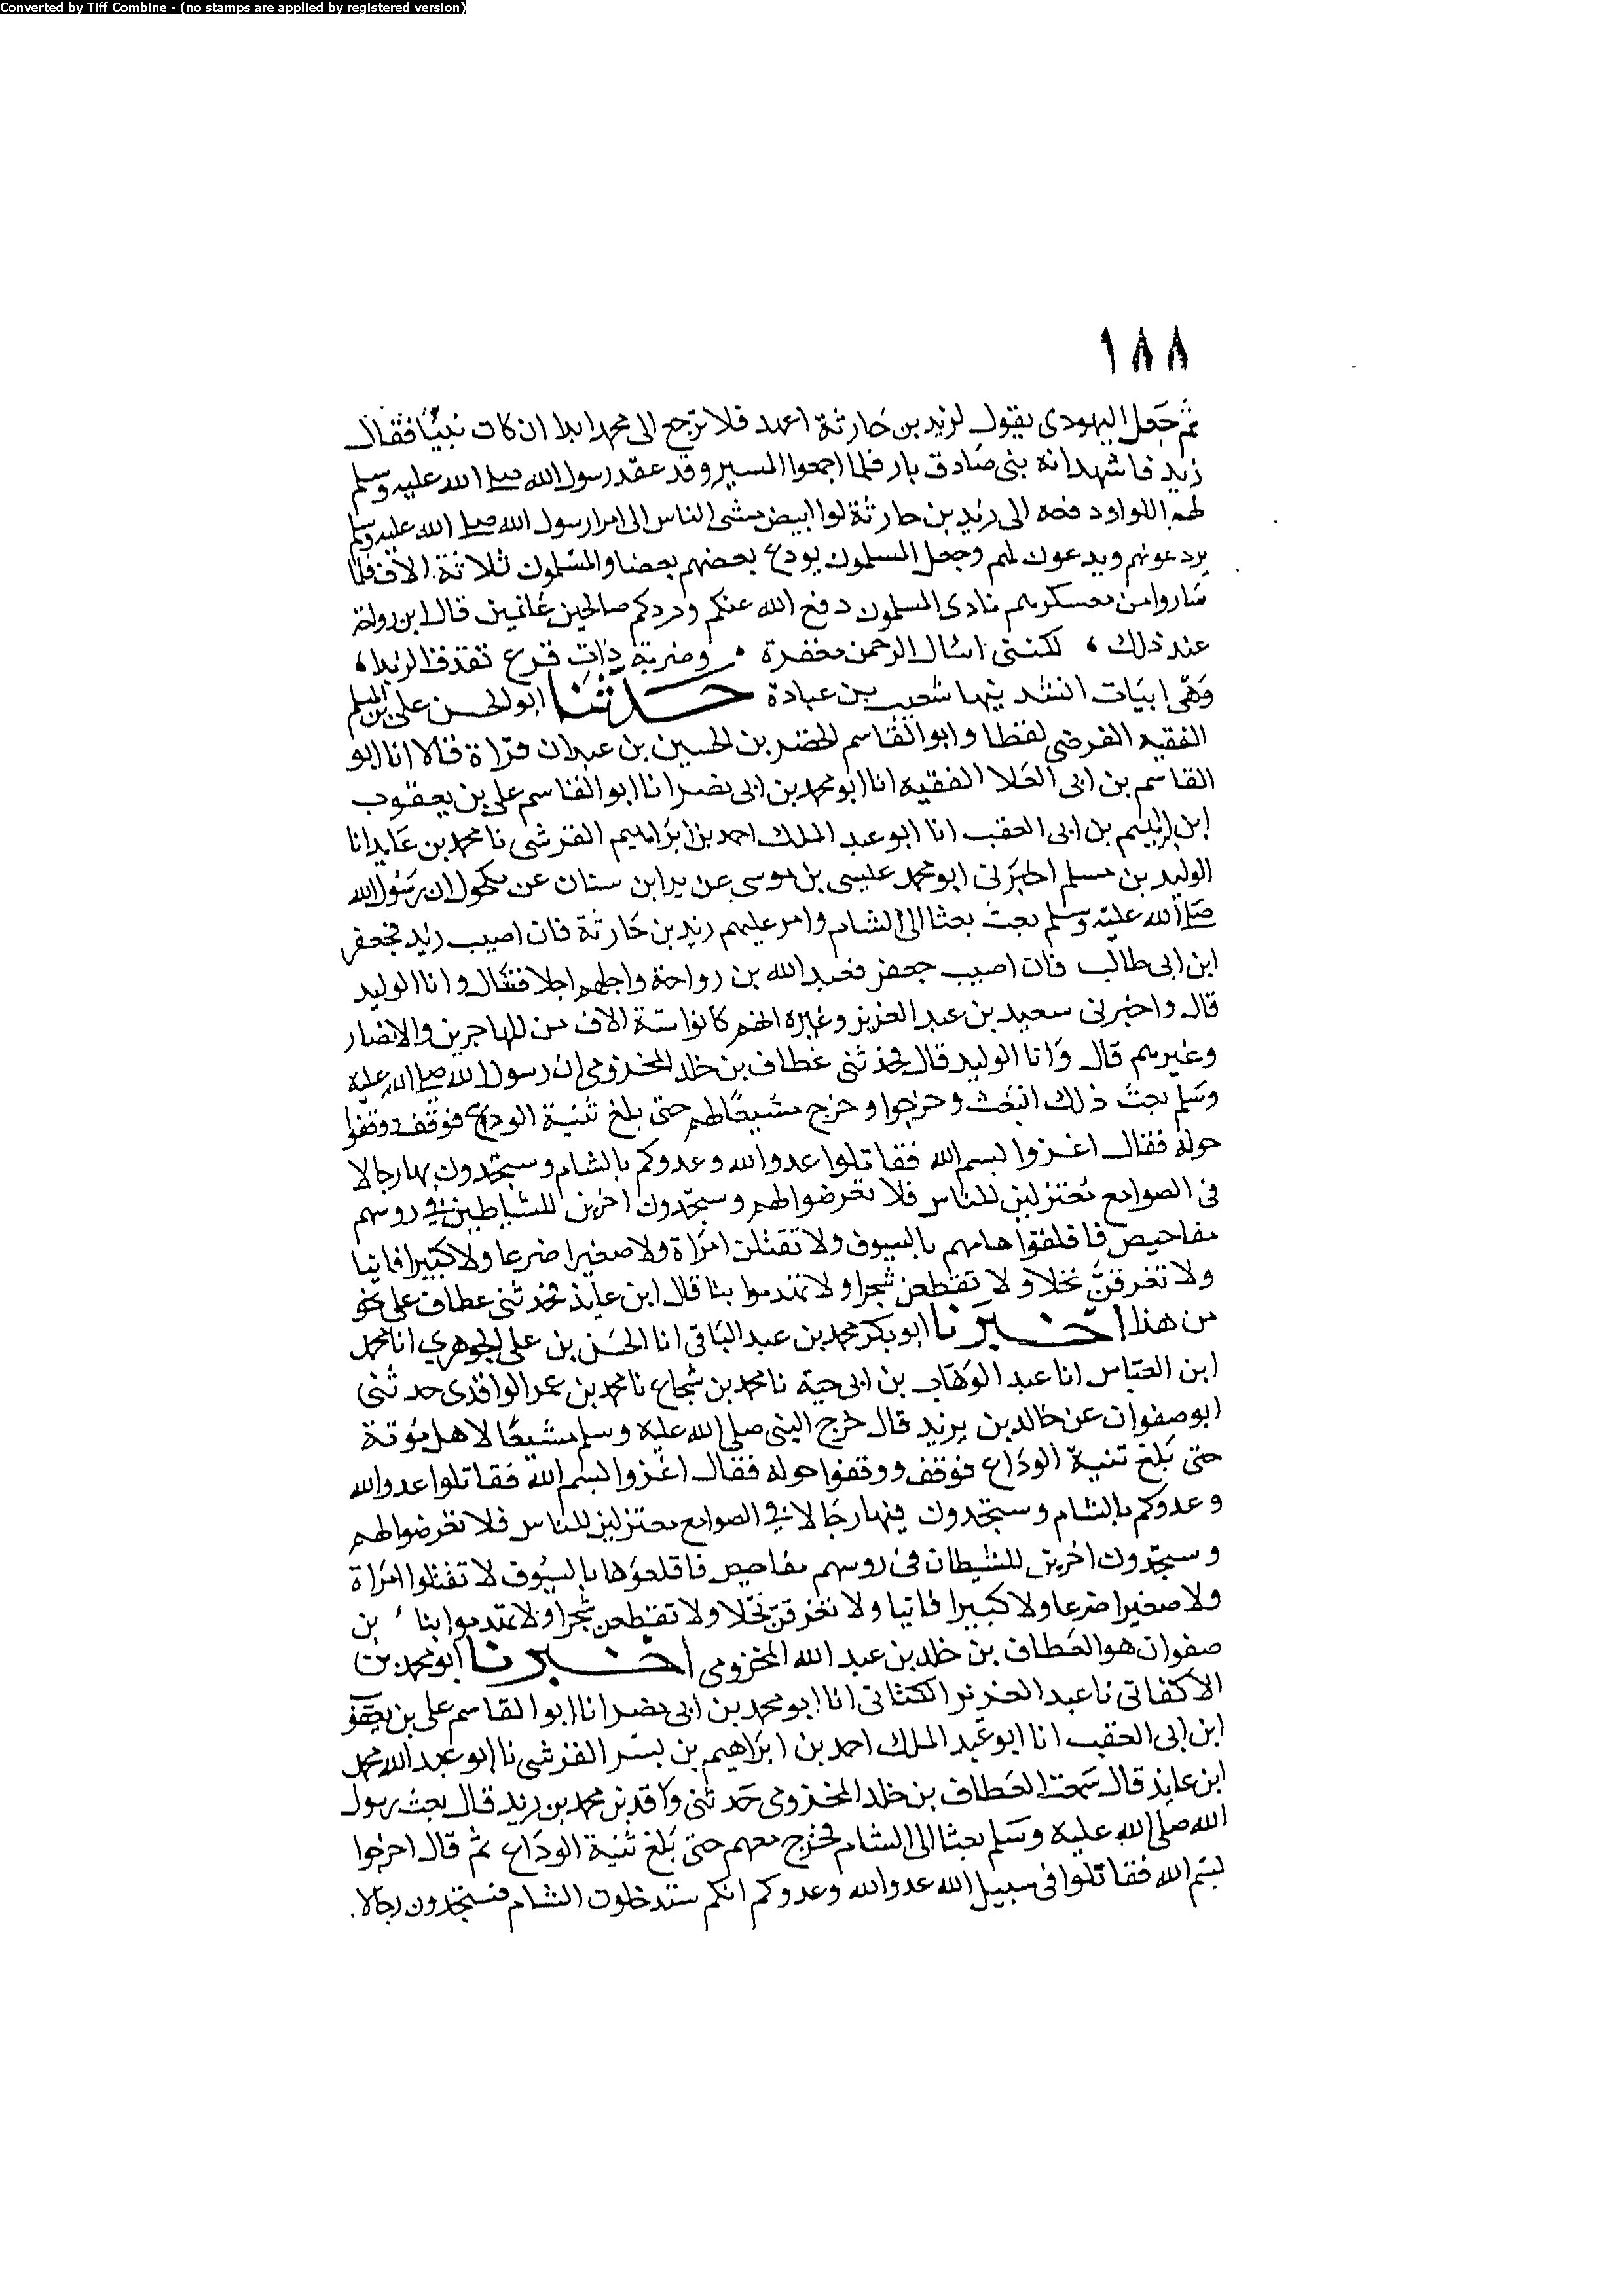 Converted by Tiff Combine - (no stamps are applied by registered version)
١٨٨
ثم جعل اليهودى يقول لزيد بن حارثة اعهد فلا ترجع الى محمد ابدا ان كان نبيا فقال
زيد فاشهد انه نبى صادق بار فلما اجمعوا المسير وقد عقد رسول الله صلى الله عليه وسلم
لهم اللوا ودفعه الى زيد بن حارثة لوا ابيض مشى الناس الى امرا رسول الله صلى الله عليه وسلم
يودعونهم ويدعون لهم وجعل المسلمون يودع بعضهم بعضا والمسلمون ثلاثة الاف فلما
ساروا من معسكرهم نادى المسلمون دفع الله عنكم وردكم صالحين غانمين قال ابن رواحة
عند ذلك ، لكننى اسال الرحمن مغفرة . وضربة ذات فرع تقذف الزبدا ،
وهى ابيات انشد فيها شعيب بن عبادة حدثنا ابو الحسن على بن المسلم
الفقيه الفرضى لفظا وابو القاسم الخضر بن الحسين بن عبدان قراة قالا انا ابو
القاسم بن ابى العلا الفقيه انا ابو محمد بن ابى نصر انا ابو القاسم على بن يعقوب
ابن ابرهيم بن ابى العقب انا ابو عبد الملك احمد بن ابراهيم القرشى نا محمد بن عايد انا
الوليد بن مسلم اخبرنى ابو محمد عيسى بن موسى عن برد ابن سنان عن مكحول ان رسول الله
صلى الله عليه وسلم بعث بعثا الى الشام وامر عليهم زيد بن حارثة فان اصيب زيد فجعفر
ابن ابى طالب فان اصيب جعفر فعبد الله بن رواحة واجلهم اجلا فقال وانا الوليد
قال واخبرنى سعيد بن عبد العزيز وغيره انهم كانوا ستة الاف من المهاجرين والانصار
وغيرهم قال وانا الوليد قال فحدثنى عطاف بن خلد المخزومى ان رسول الله صلى الله عليه
وسلم بعث ذلك البعث وخرجوا وخرج مشيعا لهم حتى بلغ ثنية الوداع فوقف ووقفوا
حوله فقال اغزوا بسم الله فقاتلوا عدو الله وعدوكم بالشام وستجدون بها رجالا
فى الصوامع معتزلين للناس فلا تعرضوا لهم وستجدون اخرين للشياطين فى روسهم
مفاحيص فافلقوا هامهم بالسيوف ولا تقتلن امراة ولا صغيرا ضرعا ولا كبيرا فانيا
ولا تغرقن نخلا ولا تقطعن شجرا ولا تهدموا بنا قال ابن عايذ فحدثنى عطاف على نحو
من هذا اخبرنا ابو بكر محمد بن عبد الباقى انا الحسن بن على الجوهرى انا محمد
ابن العباس انا عبد الوهاب بن ابى حية نا محمد بن شجاع نا محمد بن عمر الواقدى حدثنى
ابو صفوان عن خالد بن يزيد قال خرج النبى صلى الله عليه وسلم مشيعا لاهل مؤتة
حتى بلغ ثنية الوداع فوقف ووقفوا حوله فقال اغزوا بسم الله فقاتلوا عدو الله
وعدوكم بالشام وستجدون فيها رجالا فى الصوامع معتزلين للناس فلا تعرضوا لهم
وستجدون اخرين للشيطان فى روسهم مفاحيص فاقلعوها بالسيوف لا تقتلوا امراة
ولا صغيرا ضرعا ولا كبيرا فانيا ولا تغرقن نخلا ولا تقطعن شجرا ولا تهدموا بنا ، بن
صفوان هو العطاف بن خلد بن عبد الله المخزومى اخبرنا ابو محمد بن
الاكفانى نا عبد العزيز الكتانى انا ابو محمد بن ابى نصر انا ابو القاسم على بن يعقوب
ابن ابى العقب انا ابو عبد الملك احمد بن ابراهيم بن بسر القرشى نا ابو عبد الله محمد
ابن عايذ قال سمعت العطاف بن خلد المخزومى حدثنى واقد بن محمد بن زيد قال بعث رسول
الله صلى الله عليه وسلم بعثا الى الشام فخرج معهم حتى بلغ ثنية الوداع ثم قال اخرجوا
بسم الله فقاتلوا فى سبيل الله عدو الله وعدوكم انكم ستدخلون الشام فستجدون رجالا.